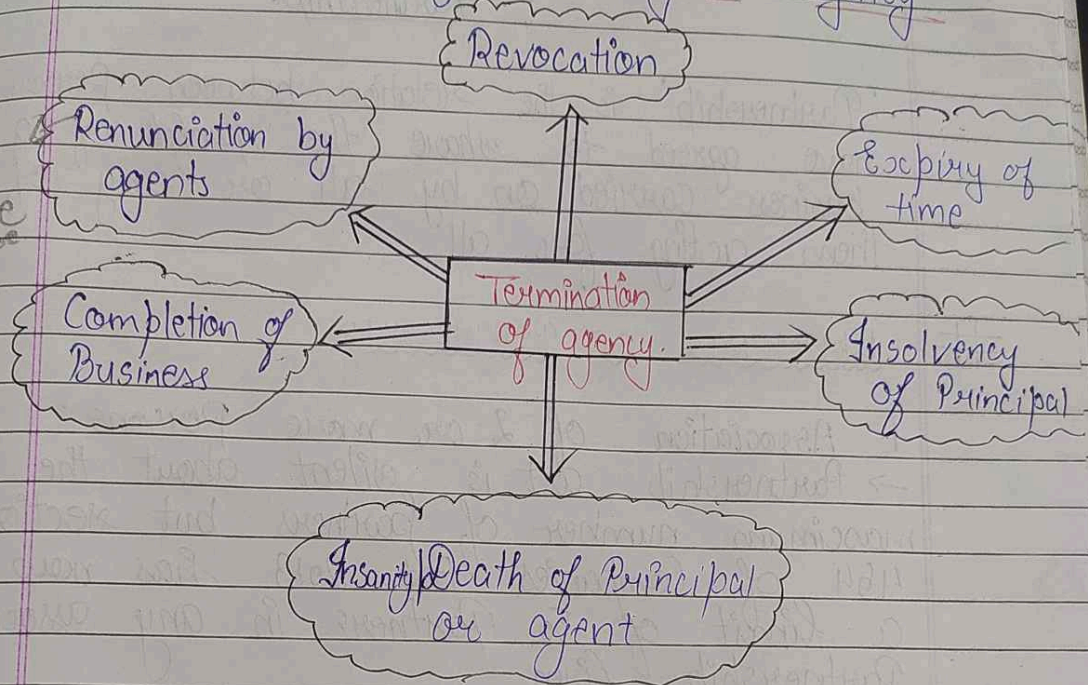 Revocation
Renunciation by
agents
Expiry of
time
Termination
of agency.
Completion of
Business
Insolvency
of Principal
Insanity/Death of Principal
or agent